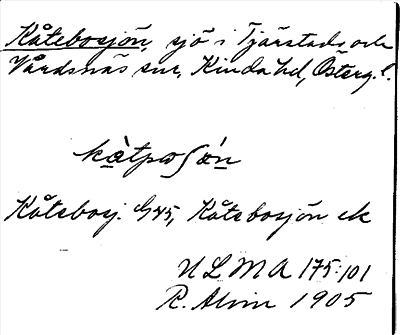 Kåtebosjön, sjö i Tjärstads och
Vårdsnäs snr, Kinda hd, Österg. l.
Kåtebosj. G45, Kåtebosjön ek
ULMA 175:101
R. Alvin 1905